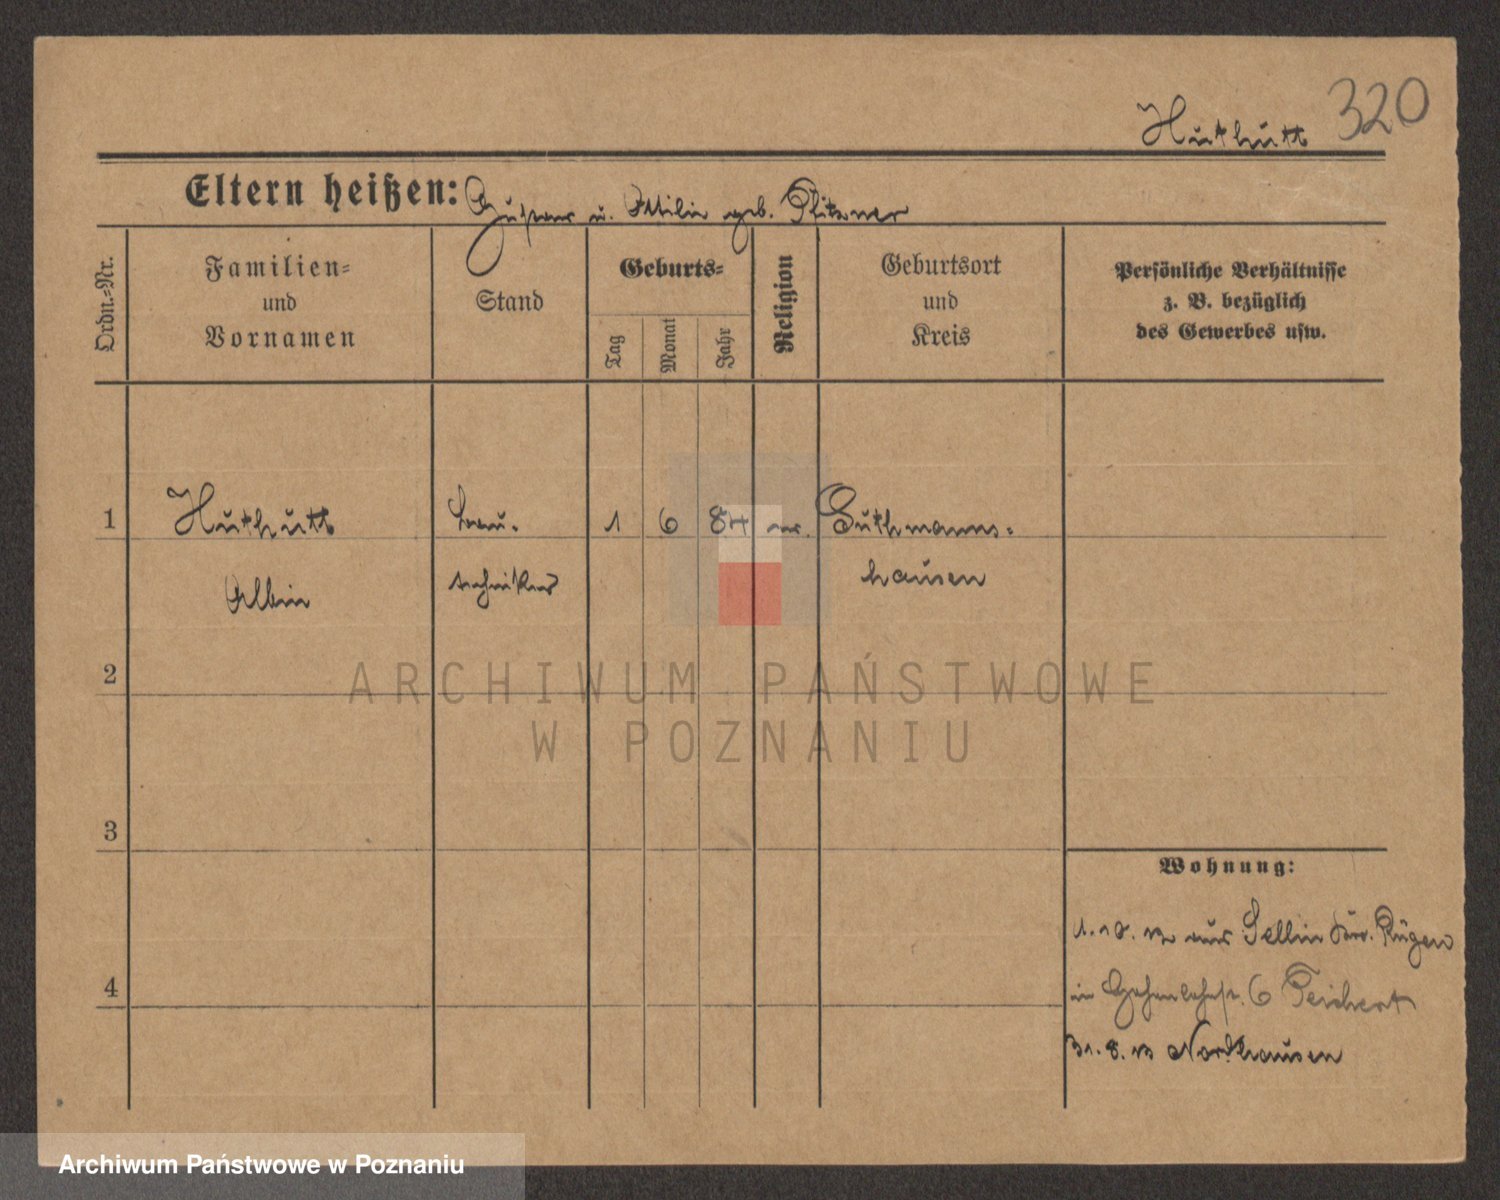 Huthutt 320
Eltern heißen: Gustav u. Ottilie geb. Pfitzner
Ordn.-Nr.
Familien-
und
Vornamen
Stand
Geburts-
Tag
Monat
Jahr
Religion
Geburtsort
und
Kreis
Persönliche Verhältnisse
z. B. bezüglich
des Gewerbes usw.
1 Huthutt Bau- 1 6 84 ev. Guthmanns-
Albin techniker hausen
2
3
4
Wohnung:
1.10.12 aus Sellin Rügen
in 6 Teichert
31.8.13 Nordhausen
ARCHIWUM PAŃSTWOWE
W POZNANIU
Archiwum Państwowe w Poznaniu